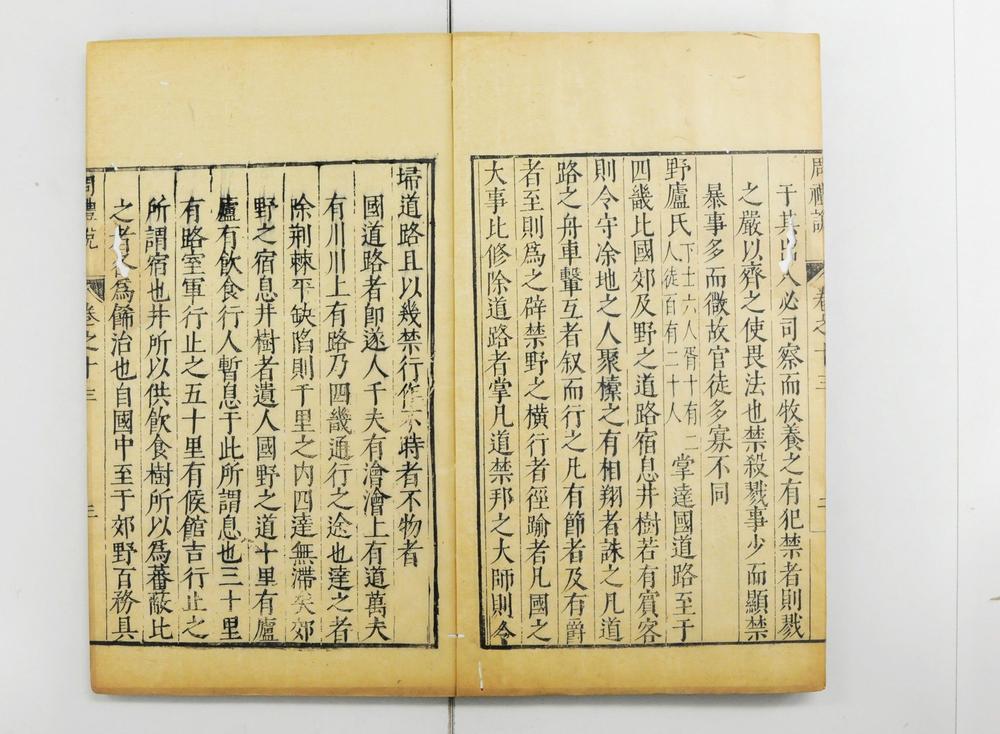 周禮說 卷之十三 三
干其出入必司察而牧養之有犯禁者則戮
之嚴以齊之使畏法也禁殺戮事少而顯禁
暴事多而微故官徒多寡不同
野廬氏下士六人胥十有二
人徒百有二十人
掌達國道路至于
四畿比國郊及野之道路宿息井樹若有賓客
則令守涂地之人聚𣝔之有相翔者誅之凡道
路之舟車轚互者叙而行之凡有節者及有爵
者至則為之辟禁野之橫行者徑踰者凡國之
大事比修除道路者掌凡道禁邦之大師則令
埽道路且以幾禁行作不時者不物者
國道路者卽遂人千夫有澮澮上有道萬夫
有川川上有路乃四畿通行之途也達之者
除荆棘平缺陷則千里之内四達無滯矣郊
野之宿息井樹者遺人國野之道十里有廬
廬有飲食行人暫息于此所謂息也三十里
有路室軍行止之五十里有候館吉行止之
所謂宿也井所以供飲食樹所以為蕃蔽比
之者為脩治也自國中至于郊野百務具
周禮說 卷之十三 三